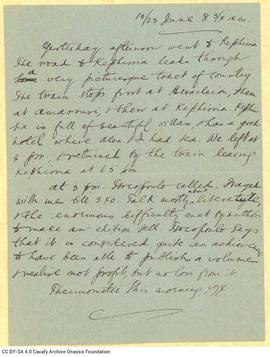 10/23 June 8 3/4 a.m.
Yesterday afternoon went to Kephisia
The road to Kephisia leads through
a very picturesque tract of country
The train stops first at Heracleion, then
at Amarousi, & then at Kephisia. Kephi-
sia is full of beautiful villas, & has a good
hotel where Alex & I had tea. We left at
6 pm, & returned by the train leaving
Kephisia at 6.5 pm
at 3 pm. Tsocopoulo called. Stayed
with me till 3.40. Talk mostly about literature,
& the enormous difficulty met by authors
to make an edition sell. Tsocopoulo says
that it is considered quite an achievement
to have been able to publish a volume
& realise not profit, but no loss from it.
Thermometer this morning:
CC BY-SA 4.0 Cavafy Archive Onassis Foundation